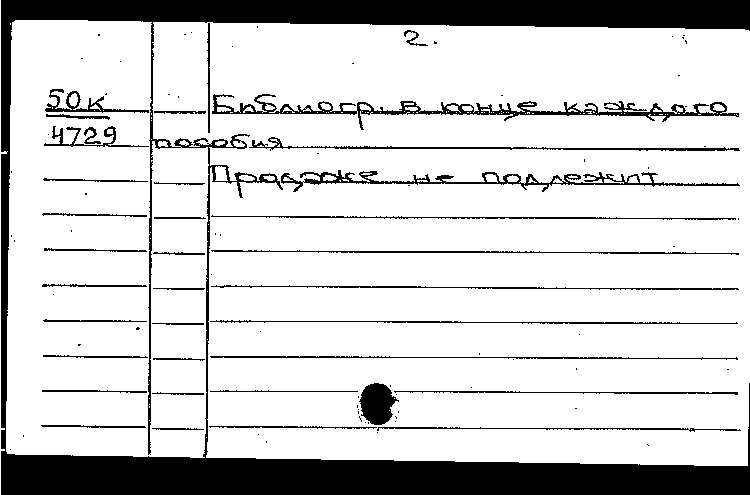 2.
50к Библиогр. в конце каждого
4729 пособия.
Продаже не подлежит